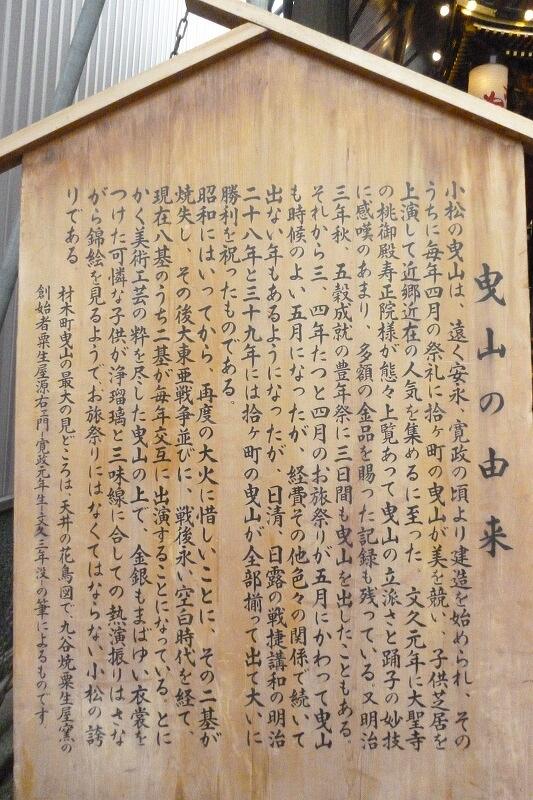 曳山の由来
小松の曳山は、遠く安永、寛政の頃より建造を始められ、その
うちに毎年四月の祭礼に拾ヶ町の曳山が美を競い、子供芝居を
上演して近郷近在の人気を集めるに至った。文久元年に大聖寺
の桃御殿寿正院様が態々上覧あって曳山の立派さと踊子の妙技
に感嘆のあまり、多額の金品を賜った記録も残っている。又明治
三年秋、五穀成就の豊年祭に三日間も曳山を出したこともある。
それから三、四年たつと四月のお旅祭りが五月にかわって曳山
も時候のよい五月になったが、経費その他色々の関係で続いて
出ない年もあるようになったが、日清、日露の戦捷講和の明治
二十八年と三十九年には拾ヶ町の曳山が全部揃って出て大いに
勝利を祝ったものである。
昭和にはいってから、再度の大火に惜しいことに、その二基が
焼失し、その後大東亜戦争並びに、戦後永い空白時代を経て、
現在八基のうち二基が毎年交互に出演することになっている。とに
かく美術工芸の粋を尽した曳山の上で、金銀もまばゆい衣裳を
つけた可憐な子供が浄瑠璃と三味線に合しての熱演振りはさな
がら錦絵を見るようで、お旅祭りにはなくてはならない小松の誇
りである。
材木町曳山の最大の見どころは、天井の花鳥図で九谷焼粟生屋窯の
創始者粟生屋源右ェ門(寛政元年生-文久三年没)の筆によるものです